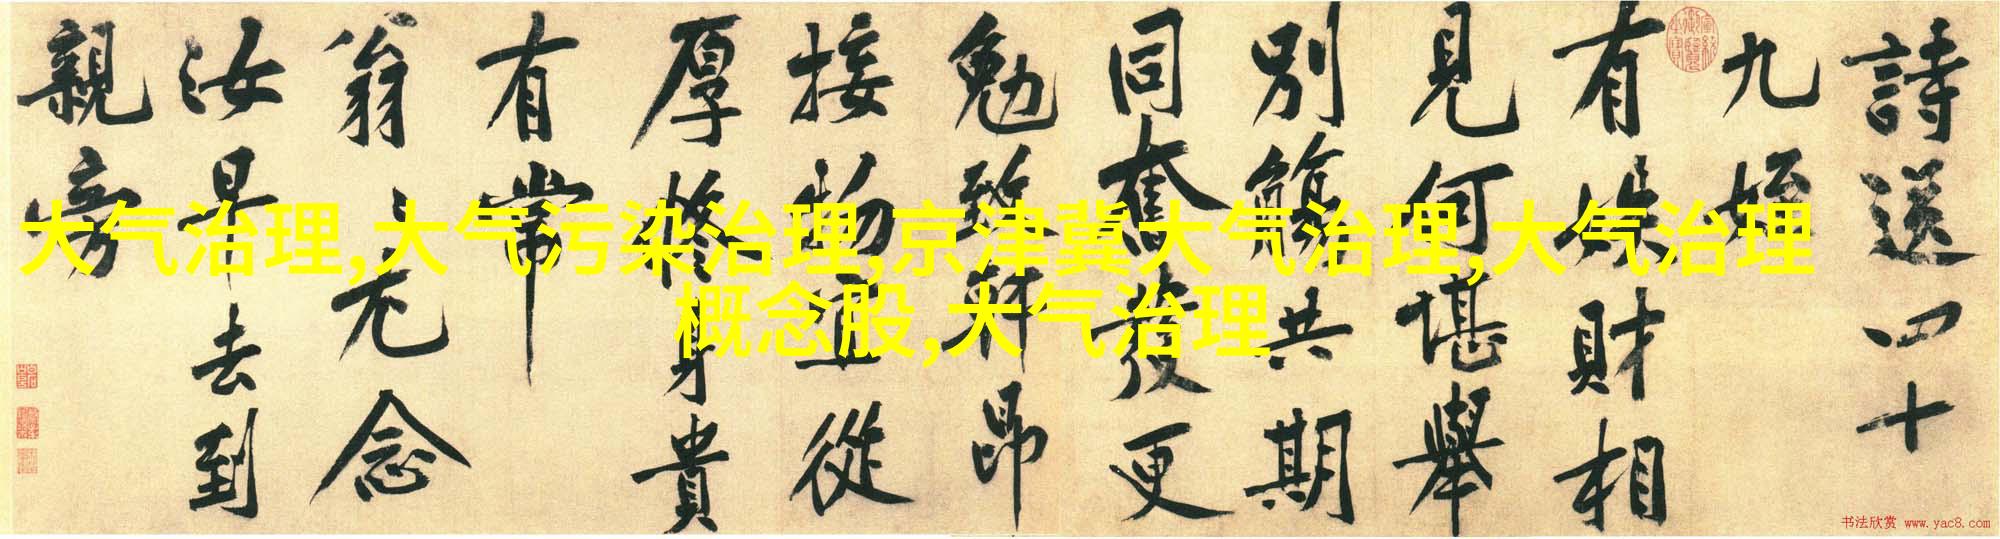 大气治理,大气污染治理,京津冀大气治理,大气治理
概念股,大气治理
詩送四十
九姪
有姪財相
見何堪舉
別觴共期
同奮發更
勉致軒昂
接物宜從
厚修身貴
有常
翁〻尤念
汝早去到
親旁
书法欣赏 www.yac8.com